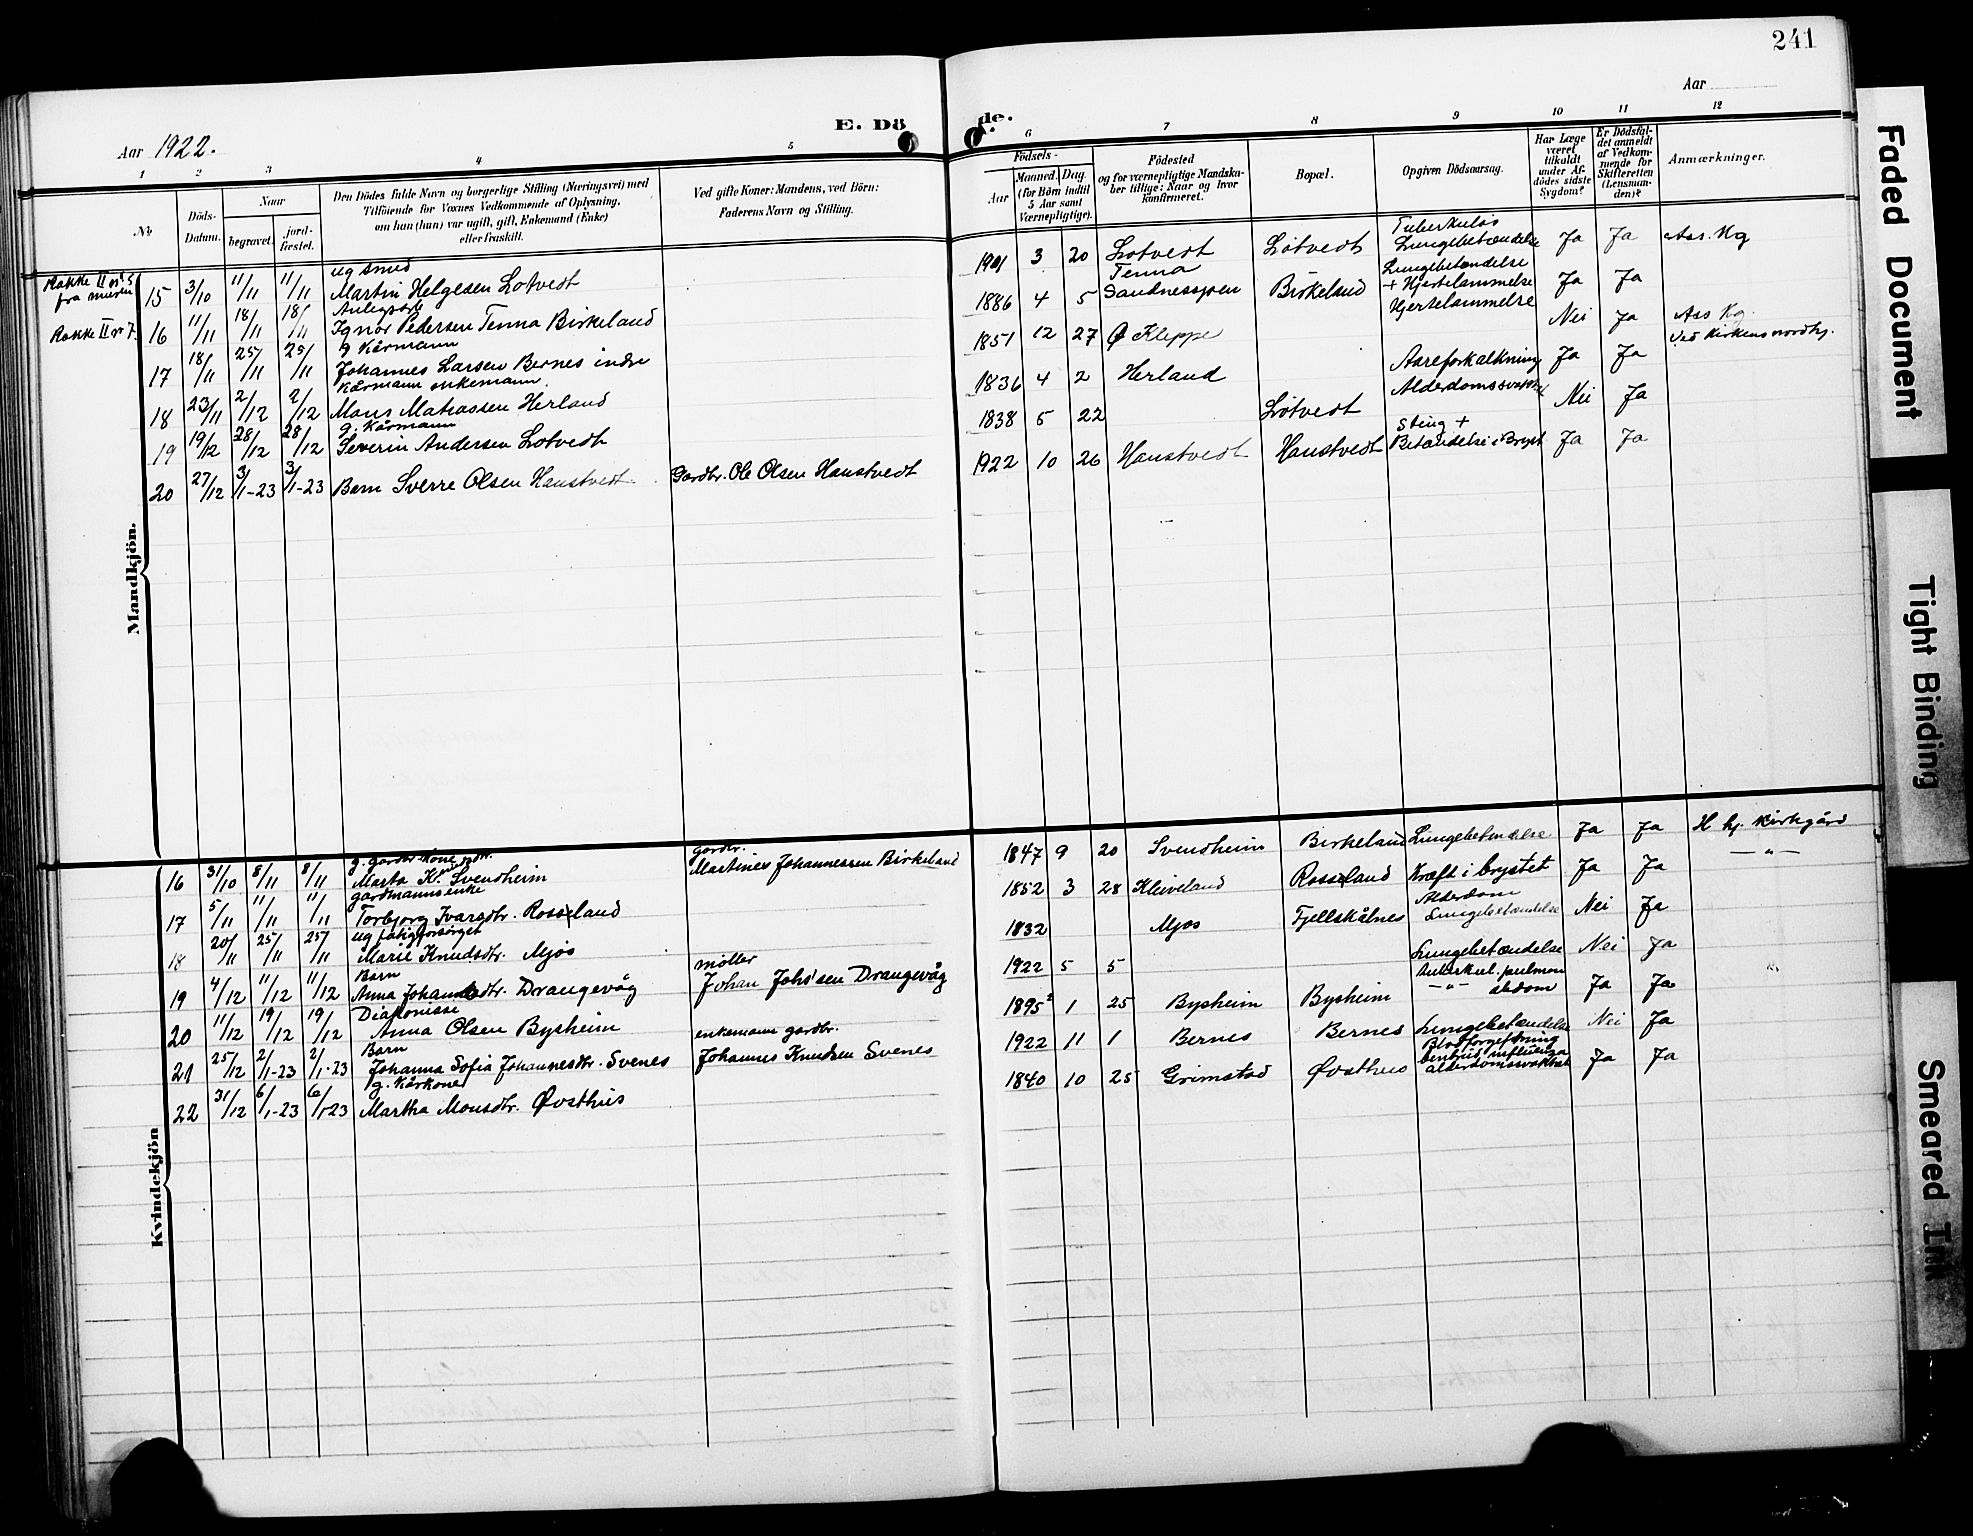 241
Aar
E. Dö de.
Aar 1922.
1 2 3 4 5 6 7 8 9 10 11 12
No
Döds-Datum.
Naar
begravet.
jord-fæstet.
Den Dödes fulde Navn og borgerlige Stilling (Næringsvei) med
Tilföiende for Voxnes Vedkommende af Oplysning,
om han (hun) var ugift, gift, Enkemand (Enke)
eller fraskilt.
Ved gifte Koner: Mandens, ved Börn:
Faderens Navn og Stilling.
Födsels-
Aar
Maaned. Dag.
(for Börn indtil
5 Aar samt
Værnepligtige).
Födested
og for værnepligtige Mandska-
ber tillige: Naar og hvor
konfirmeret.
Bopæl.
Opgiven Dödsaarsag.
Har Læge
været
tilkaldt
under Af-
dödes sidste
Sygdom?
Er Dödsfal-
det anmeldt
af Vedkom-
mende for
Skifteretten
(Lensman-
den)?
Anmærkninger.
Mandkjön.
Række II nr 5
fra muren
15 3/10 11/11 11/11 ug smed
Martin Helgesen Lotvedt 1901 3 20 Lotvedt Lotvedt Tuberkuløs
Lungebetændelse Ja Ja Ass. Kg
Række II nr 7
16 11/11 18/11 18/11 Anlegsarb
Ignor Pedersen Tenna Birkeland 1886 4 5 Tenna
Sandnessjoen Birkeland Lungebetændelse
+ Hjertelammelse Ja Ja
17 18/11 25/11 25/11 g Kårmann
Johannes Larsen Bernes indre 1851 12 27 Ø Kleppe Hjertelammelse Nei Ja Ass Kg.
ved Kirkens nordhj.
18 23/11 2/12 2/12 Kårmann enkemann.
Mons Matiassen Herland 1836 4 2 Herland Aareforkalkning Ja Ja
19 19/12 28/12 28/12 g. Kårmann
Severin Andersen Lotvedt 1838 5 22 Løtvedt Alderdomssvakhet Nei Ja
20 27/12 3/1-23 3/1-23 Barn Sverre Olsen Haustvedt Gardbr. Ole Olsen Haustvedt 1922 10 26 Haustvedt Haustvedt Sting +
Betændelse i Bryst Ja Ja
Kvindekjön
16 31/10 8/11 8/11 g. gardbr kone
Marta K. Svendheim gardbr.
Martines Johannessen Birkeland 1847 9 20 Svendheim Birkeland Lungebetændelse Ja Ja H hj. Kirkgård
17 5/11 11/11 11/11 gardmannsenke
Torbjorg Ivarsdtr. Rosseland 1852 3 28 Kleiveland Rosseland Kræft i brystet Ja Ja —"—
18 20/11 25/11 25/11 ug fatigforsørget
Marie Knudsdtr. Mjøs 1832 Mjos Fjellskålnes Alderdom
Lungebetændelse Nei Ja
19 4/12 11/12 11/12 Barn
Anna Johansdtr. Drangevåg møller
Johan Johs'sen Drangevåg 1922 5 5 Lungebetændelse Nei Ja
20 11/12 19/12 19/12 Diakonisse
Anna Olsen Bysheim 1895 1 25 Bysheim Bysheim Tuberkul. pulmon
—"— abdom Ja Ja
21 25/12 2/1-23 2/1-23 Barn
Johanna Sofia Johannesdtr. Svenes enkemann gardbr.
Johannes Knudsen Svenes 1922 11 1 Bernes Bernes Lungebetændelse Nei Ja
22 31/12 6/1-23 6/1 23 g. Kårkone
Martha Monsdtr. Øvsthus 1840 10 25 Grimstad Øvsthus Blodforgiftning
influenza
alderdomsvakhet Ja Ja
Faded Document
Tight Binding
Smeared Ink